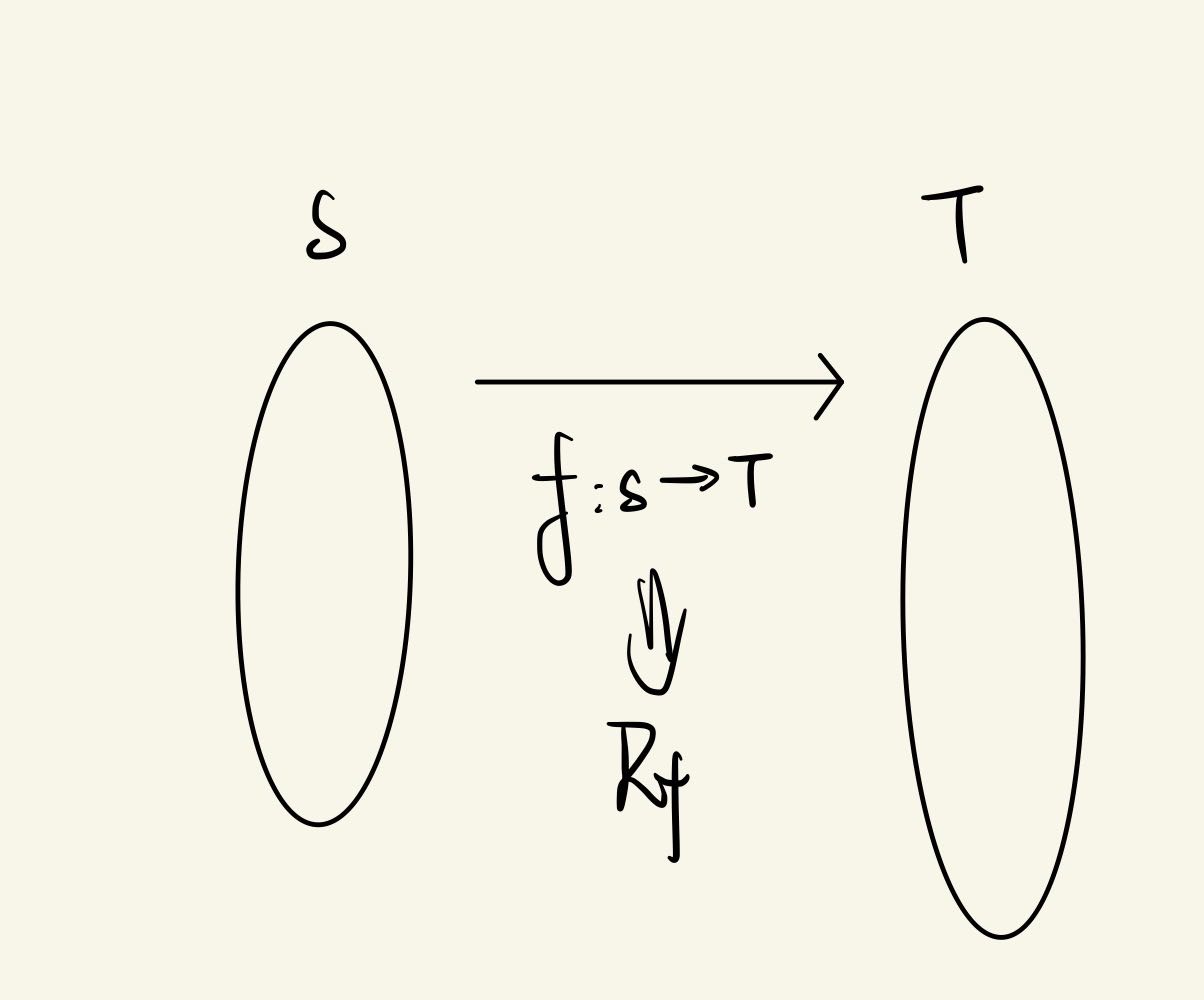 S T
f: s → T
⇓
Rf